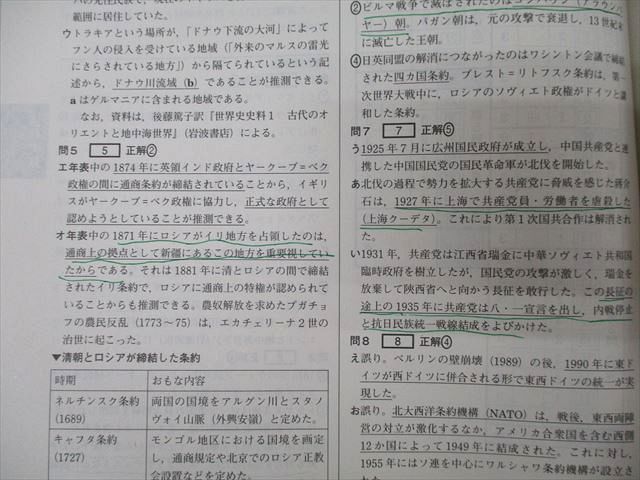 範囲に居住していた。
ウトラキアという場所が、「ドナウ下流の大河」によって
フン人の侵入を受けている地域(「外来のマルスの雷光
にさらされている地方」)から隔てられているという記
述から、ドナウ川流域(b)であることが推測できる。
aはゲルマニアに含まれる地域である。
なお、資料は、後藤篤子訳『世界史史料1 古代のオ
リエントと地中海世界』(岩波書店)による。
問5 5 正解②
エ年表中の1874年に英領インド政府とヤークーブ=ベク
政権の間に通商条約が締結されていることから、イギリ
スがヤークーブ=ベク政権に協力し、正式な政府として
認めようとしていることが推測できる。
オ年表中の1871年にロシアがイリ地方を占領したのは、
通商上の拠点として新疆にあるこの地方を重要視してい
たからである。それは1881年に清とロシアの間で締結
されたイリ条約で、ロシアに通商上の特権が認められて
いることからも推測できる。農奴解放を求めたプガチョ
フの農民反乱(1773〜75)は、エカチェリーナ2世の
治世に起こった。
▼清朝とロシアが締結した条約
時期 おもな内容
ネルチンスク条約 両国の国境をアルグン川とスタノ
(1689) ヴォイ山脈(外興安嶺)と定めた。
キャフタ条約 モンゴル地区における国境を画定
(1727) し、通商規定や北京でのロシア正教
会設置などを定めた。
②ビルマ戦争で滅ぼされたのはコンバウン(アラウンパ
ヤー)朝。パガン朝は、元の攻撃で衰退し、13世紀末
に滅亡した王朝。
④日英同盟の解消につながったのはワシントン会議で締結
された四カ国条約。ブレスト=リトフスク条約は、第一
次世界大戦中に、ロシアのソヴィエト政権がドイツと講
和した条約。
問7 7 正解⑤
う1925年7月に広州国民政府が成立し、中国共産党と連
携した中国国民党の国民革命軍が北伐を開始した。
あ北伐の過程で勢力を拡大する共産党に脅威を感じた蔣介
石は、1927年に上海で共産党員・労働者を虐殺した
(上海クーデタ)。これにより第1次国共合作は解消され
た。
い1931年、共産党は江西省瑞金に中華ソヴィエト共和国
臨時政府を樹立したが、国民党の攻撃が激しく、瑞金を
放棄して陝西省へと向かう長征を敢行した。この長征の
途上の1935年に共産党は八・一宣言を出し、内戦停止
と抗日民族統一戦線結成をよびかけた。
問8 8 正解④
え誤り。ベルリンの壁崩壊(1989)の後、1990年に東ド
イツが西ドイツに併合される形で東西ドイツの統一が実
現した。
お誤り。北大西洋条約機構(NATO)は、戦後、東西両陣
営の対立が激化するなか、アメリカ合衆国を含む西側
12か国によって1949年に結成された。これに対し、
1955年にはソ連を中心にワルシャワ条約機構が設立さ